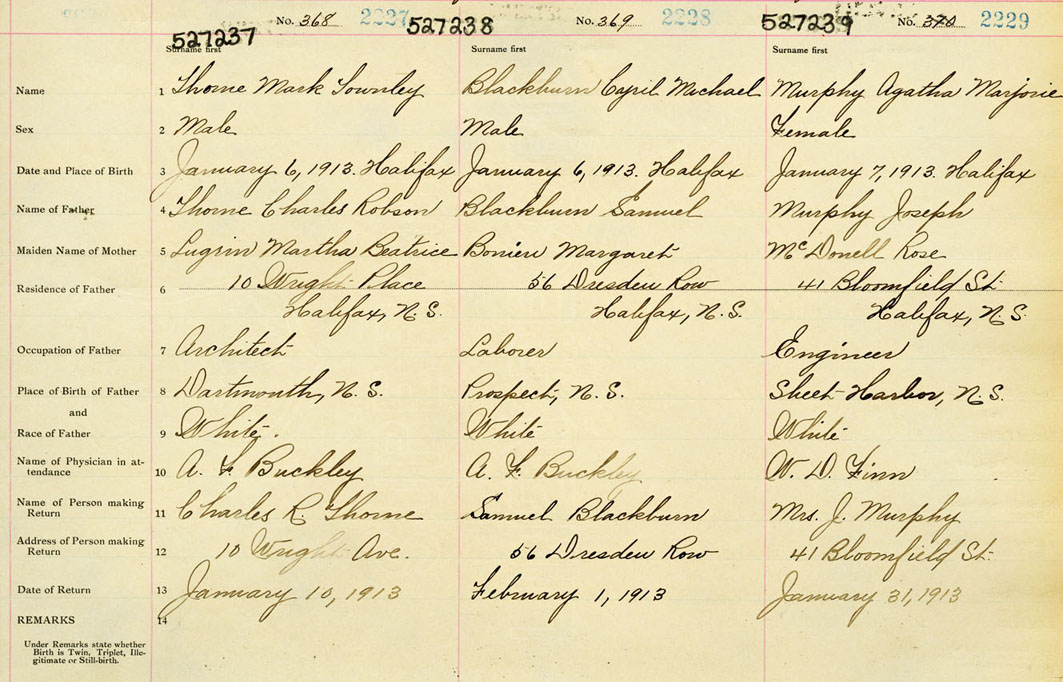 No. 368 2227 No. 369 2228 No. 370 2229
527237 527238 527239
Surname first Surname first Surname first
Name 1 Thorne Mark Townley Blackburn Cyril Michael Murphy Agatha Marjorie
Sex 2 Male Male Female
Date and Place of Birth 3 January 6, 1913. Halifax January 6, 1913. Halifax January 7, 1913. Halifax
Name of Father 4 Thorne Charles Robson Blackburn Samuel Murphy Joseph
Maiden Name of Mother 5 Lugrin Martha Beatrice Margaret McDonell Rose
Residence of Father 6 10 Wright Place 56 Dresden Row 41 Bloomfield St.
Halifax, N.S. Halifax, N.S. Halifax, N.S.
Occupation of Father 7 Architect Laborer Engineer
Place of Birth of Father 8 Dartmouth, N.S. Prospect, N.S. Sheet Harbor, N.S.
and
Race of Father 9 White. White White
Name of Physician in at-
tendance 10 A. F. Buckley A. F. Buckley W. D. Finn
Name of Person making
Return 11 Charles R. Thorne Samuel Blackburn Mrs. J. Murphy
Address of Person making
Return 12 10 Wright Ave. 56 Dresden Row 41 Bloomfield St.
Date of Return 13 January 10, 1913 February 1, 1913 January 31, 1913
REMARKS 14
Under Remarks state whether
Birth is Twin, Triplet, Ille-
gitimate or Still-birth.